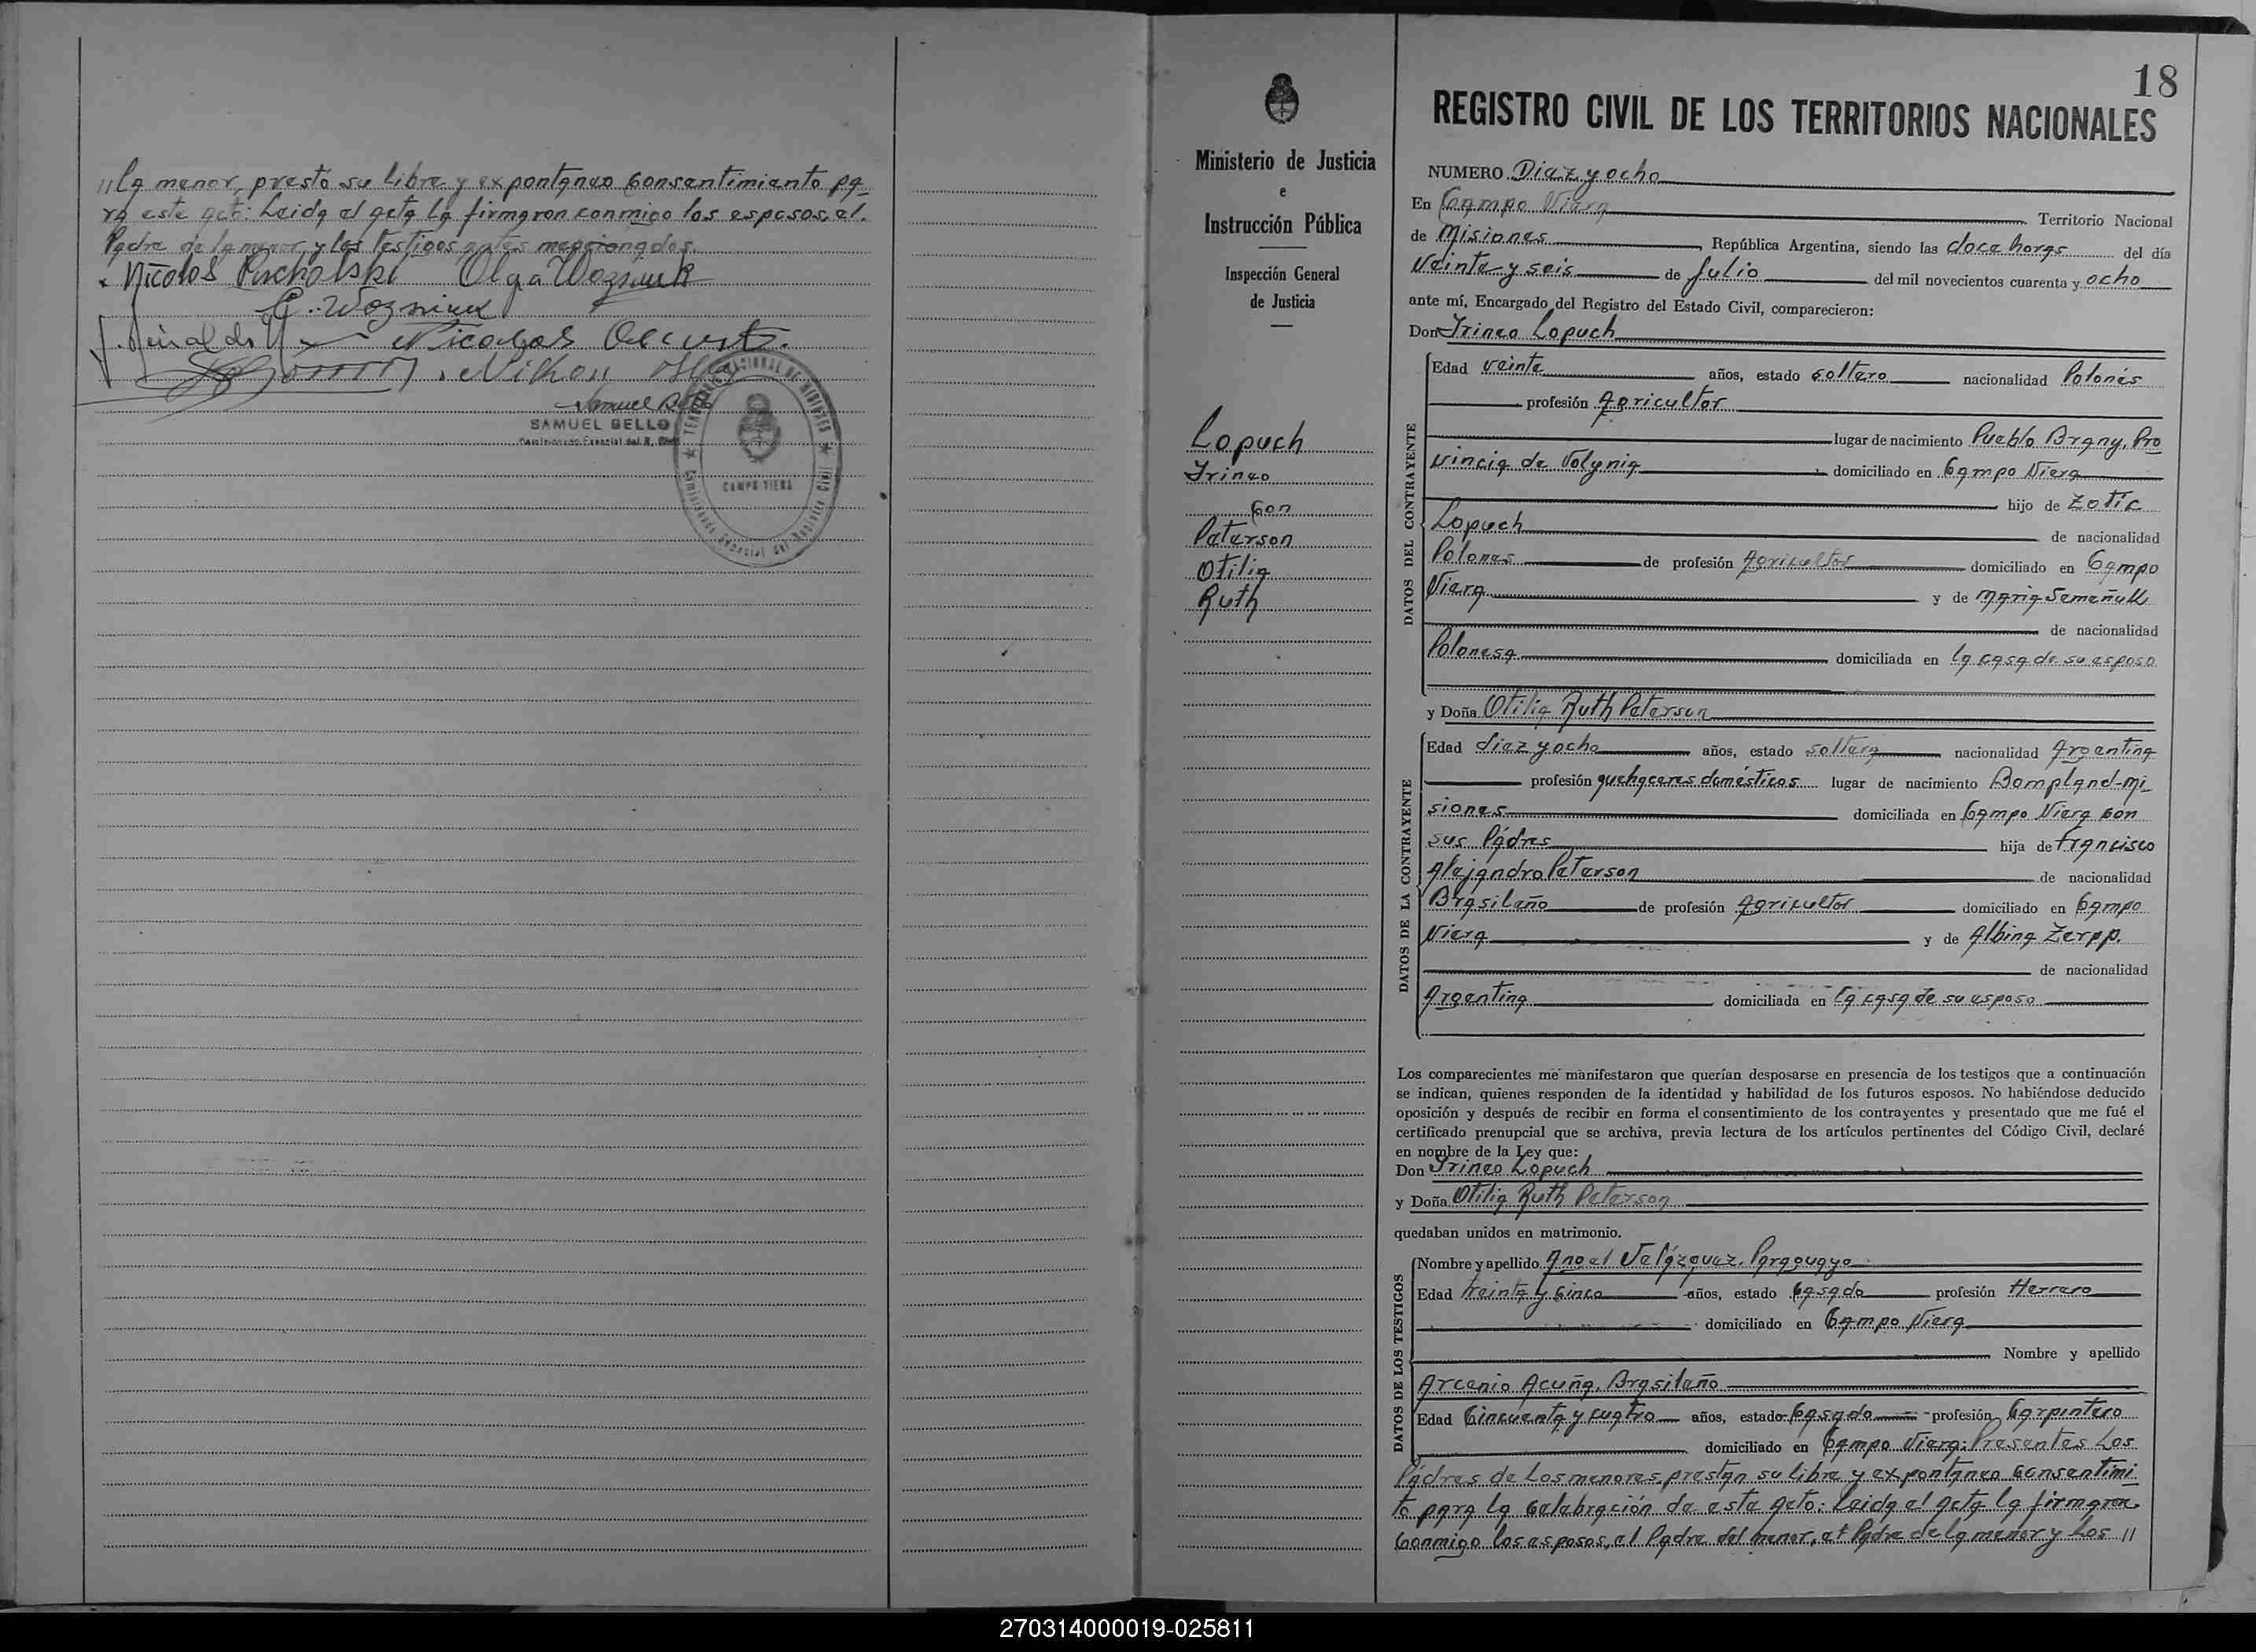 "la menor, prestó su libre y expontaneo Consentimiento pa-
ra este acto: Leida el acta la firmaron conmigo los esposos, el
Padre de la menor y los testigos antes mencionados.
Nicolas Olga Wozniuk
C. Wozniuk
Nicolas
Nikon
Samuel Bello
SAMUEL BELLO
TERRITORIO NACIONAL DE MISIONES
CAMPO VIERA
18
REGISTRO CIVIL DE LOS TERRITORIOS NACIONALES
Ministerio de Justicia
e
Instrucción Pública
Inspección General
de Justicia
Lopuch
Irineo
Con
Peterson
Otilia
Ruth
NUMERO Diez y ocho
En Campo Viera Territorio Nacional
de Misiones, República Argentina, siendo las doce horas del día
Veinte y seis de Julio del mil novecientos cuarenta y ocho
ante mí, Encargado del Registro del Estado Civil, comparecieron:
Don Irineo Lopuch
DATOS DEL CONTRAYENTE
Edad veinte años, estado Soltero nacionalidad Polonés
profesión Agricultor
lugar de nacimiento Pueblo Brany, Pro
vincia de Volynia domiciliado en Campo Viera
hijo de Zotic
Lopuch de nacionalidad
Polones de profesión Agricultor domiciliado en Campo
Viera y de Maria
de nacionalidad
Polonesa domiciliada en la casa de su esposo
y Doña Otilia Ruth Peterson
DATOS DE LA CONTRAYENTE
Edad diez y ocho años, estado soltera nacionalidad Argentina
profesión quehaceres domésticos lugar de nacimiento Bompland-Mi-
siones domiciliada en Campo Viera con
sus Pádres hija de Francisco
Alejandro Peterson de nacionalidad
Brasileño de profesión Agricultor domiciliado en Campo
Viera y de Albina Zerpp.
de nacionalidad
Argentina domiciliada en la casa de su esposo
Los comparecientes me manifestaron que querían desposarse en presencia de los testigos que a continuación
se indican, quienes responden de la identidad y habilidad de los futuros esposos. No habiéndose deducido
oposición y después de recibir en forma el consentimiento de los contrayentes y presentado que me fué el
certificado prenupcial que se archiva, previa lectura de los artículos pertinentes del Código Civil, declaré
en nombre de la Ley que:
Don Irineo Lopuch
y Doña Otilia Ruth Peterson
quedaban unidos en matrimonio.
DATOS DE LOS TESTIGOS
Nombre y apellido Angel Velázquez, Paraguayo
Edad treinta y Cinco años, estado Casado profesión Herrero
domiciliado en Campo Viera
Nombre y apellido
Arcenio Acuña, Brasileño
Edad Cincuenta y cuatro años, estado Casado profesión Carpintero
domiciliado en Campo Viera: Presentes Los
Pádres de Los menores, prestan su libre y expontaneo Consentimi
to para la Celebración de este acto: Leida el acta la firmaron
Conmigo los esposos, el Padre del menor, el Padre de la menor y Los "
270314000019-025811